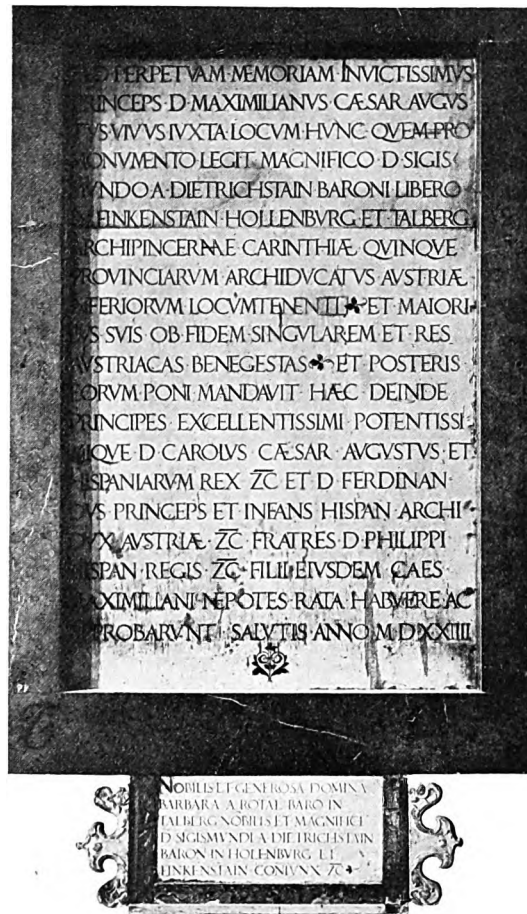 AD PERPETVAM·MEMORIAM·INVICTISSIMVS
PRINCEPS·D·MAXIMILIANVS·CÆSAR·AVGVS
TVS·VIVVS·IVXTA·LOCVM·HVNC·QVEM·PRO
MONVMENTO·LEGIT·MAGNIFICO·D·SIGIS
MVNDO·A·DIETRICHSTAIN·BARONI·LIBERO
FINKENSTAIN·HOLLENBVRG·ET·TALBERG
ARCHIPINCERNAE·CARINTHIÆ·QVINQVE
PROVINCIARVM·ARCHIDVCATVS·AVSTRIÆ
INFERIORVM·LOCVMTENENTI ET·MAIORI
BVS·SVIS·OB·FIDEM·SINGVLAREM·ET·RES
AVSTRIACAS·BENEGESTAS ET·POSTERIS
EORVM·PONI·MANDAVIT·HÆC·DEINDE
PRINCIPES·EXCELLENTISSIMI·POTENTISSI
MIQVE·D·CAROLVS·CÆSAR·AVGVSTVS·ET·
HISPANIARVM·REX·Z̅C̅·ET·D·FERDINAN
DVS·PRINCEPS·ET·INFANS·HISPAN·ARCHI
DVX·AVSTRIÆ·Z̅C̅·FRATRES·D·PHILIPPI
HISPAN·REGIS·Z̅C̅·FILII·EIVSDEM·CAES·
MAXIMILIANI·NEPOTES·RATA·HABVERE·AC
PROBARVNT·SALVTIS·ANNO·M·D·XXIIII
NOBILIS·ET·GENEROSA·DOMINA
BARBARA·A·ROTAL·BARO·IN
TALBERG·NOBILIS·ET·MAGNIFICI
D·SIGISMVNDI·A·DIETRICHSTAIN
BARON·IN·HOLENBVRG·ET
FINKENSTAIN·CONIVNX·Z̅C̅